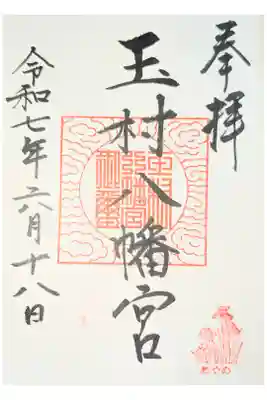 奉拝
玉村八幡宮
令和七年六月十八日